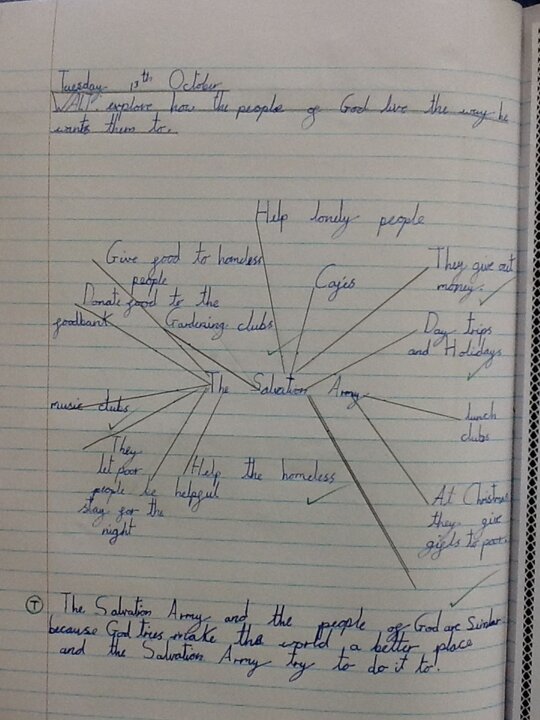 Tuesday 13th October
WALT: explore how the people of God live the way he
wants them to.
Help lonely people
Give food to homeless
people
Cafés
They give out
money.
Donate food to the
foodbank
Gardening clubs
Day trips
and Holidays
The Salvation Army
music clubs
lunch
clubs
They
let poor
people
stay for the
night
Help the homeless
be helpful
At Christmas
they give
gifts to poor.
T The Salvation Army and the people of God are Similar
because God tries make the world a better place
and the Salvation Army try to do it to!